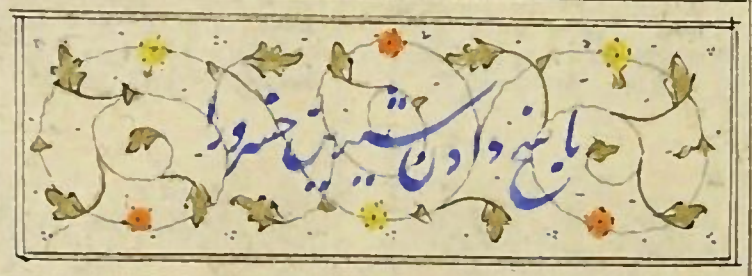 پاسخ دادن شیرین خسرو را